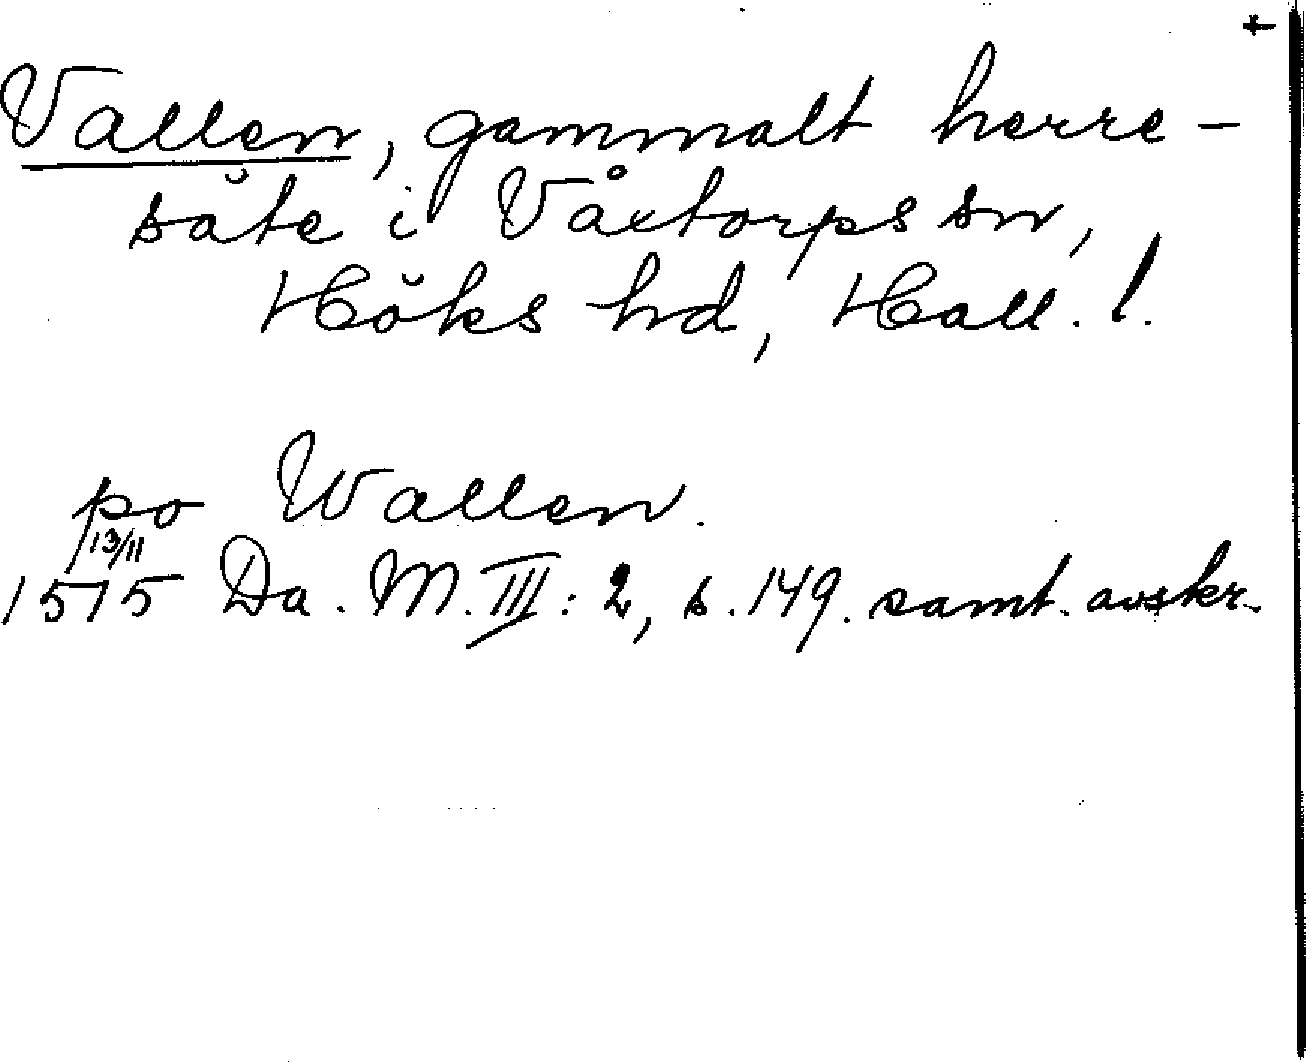 Vallen, gammalt herre-
säte i Våxtorps sn,
Höks hd, Hall. l.
po Wallen.
13/11
1575 Da. M. III: 2, s. 149. samt. avskr.